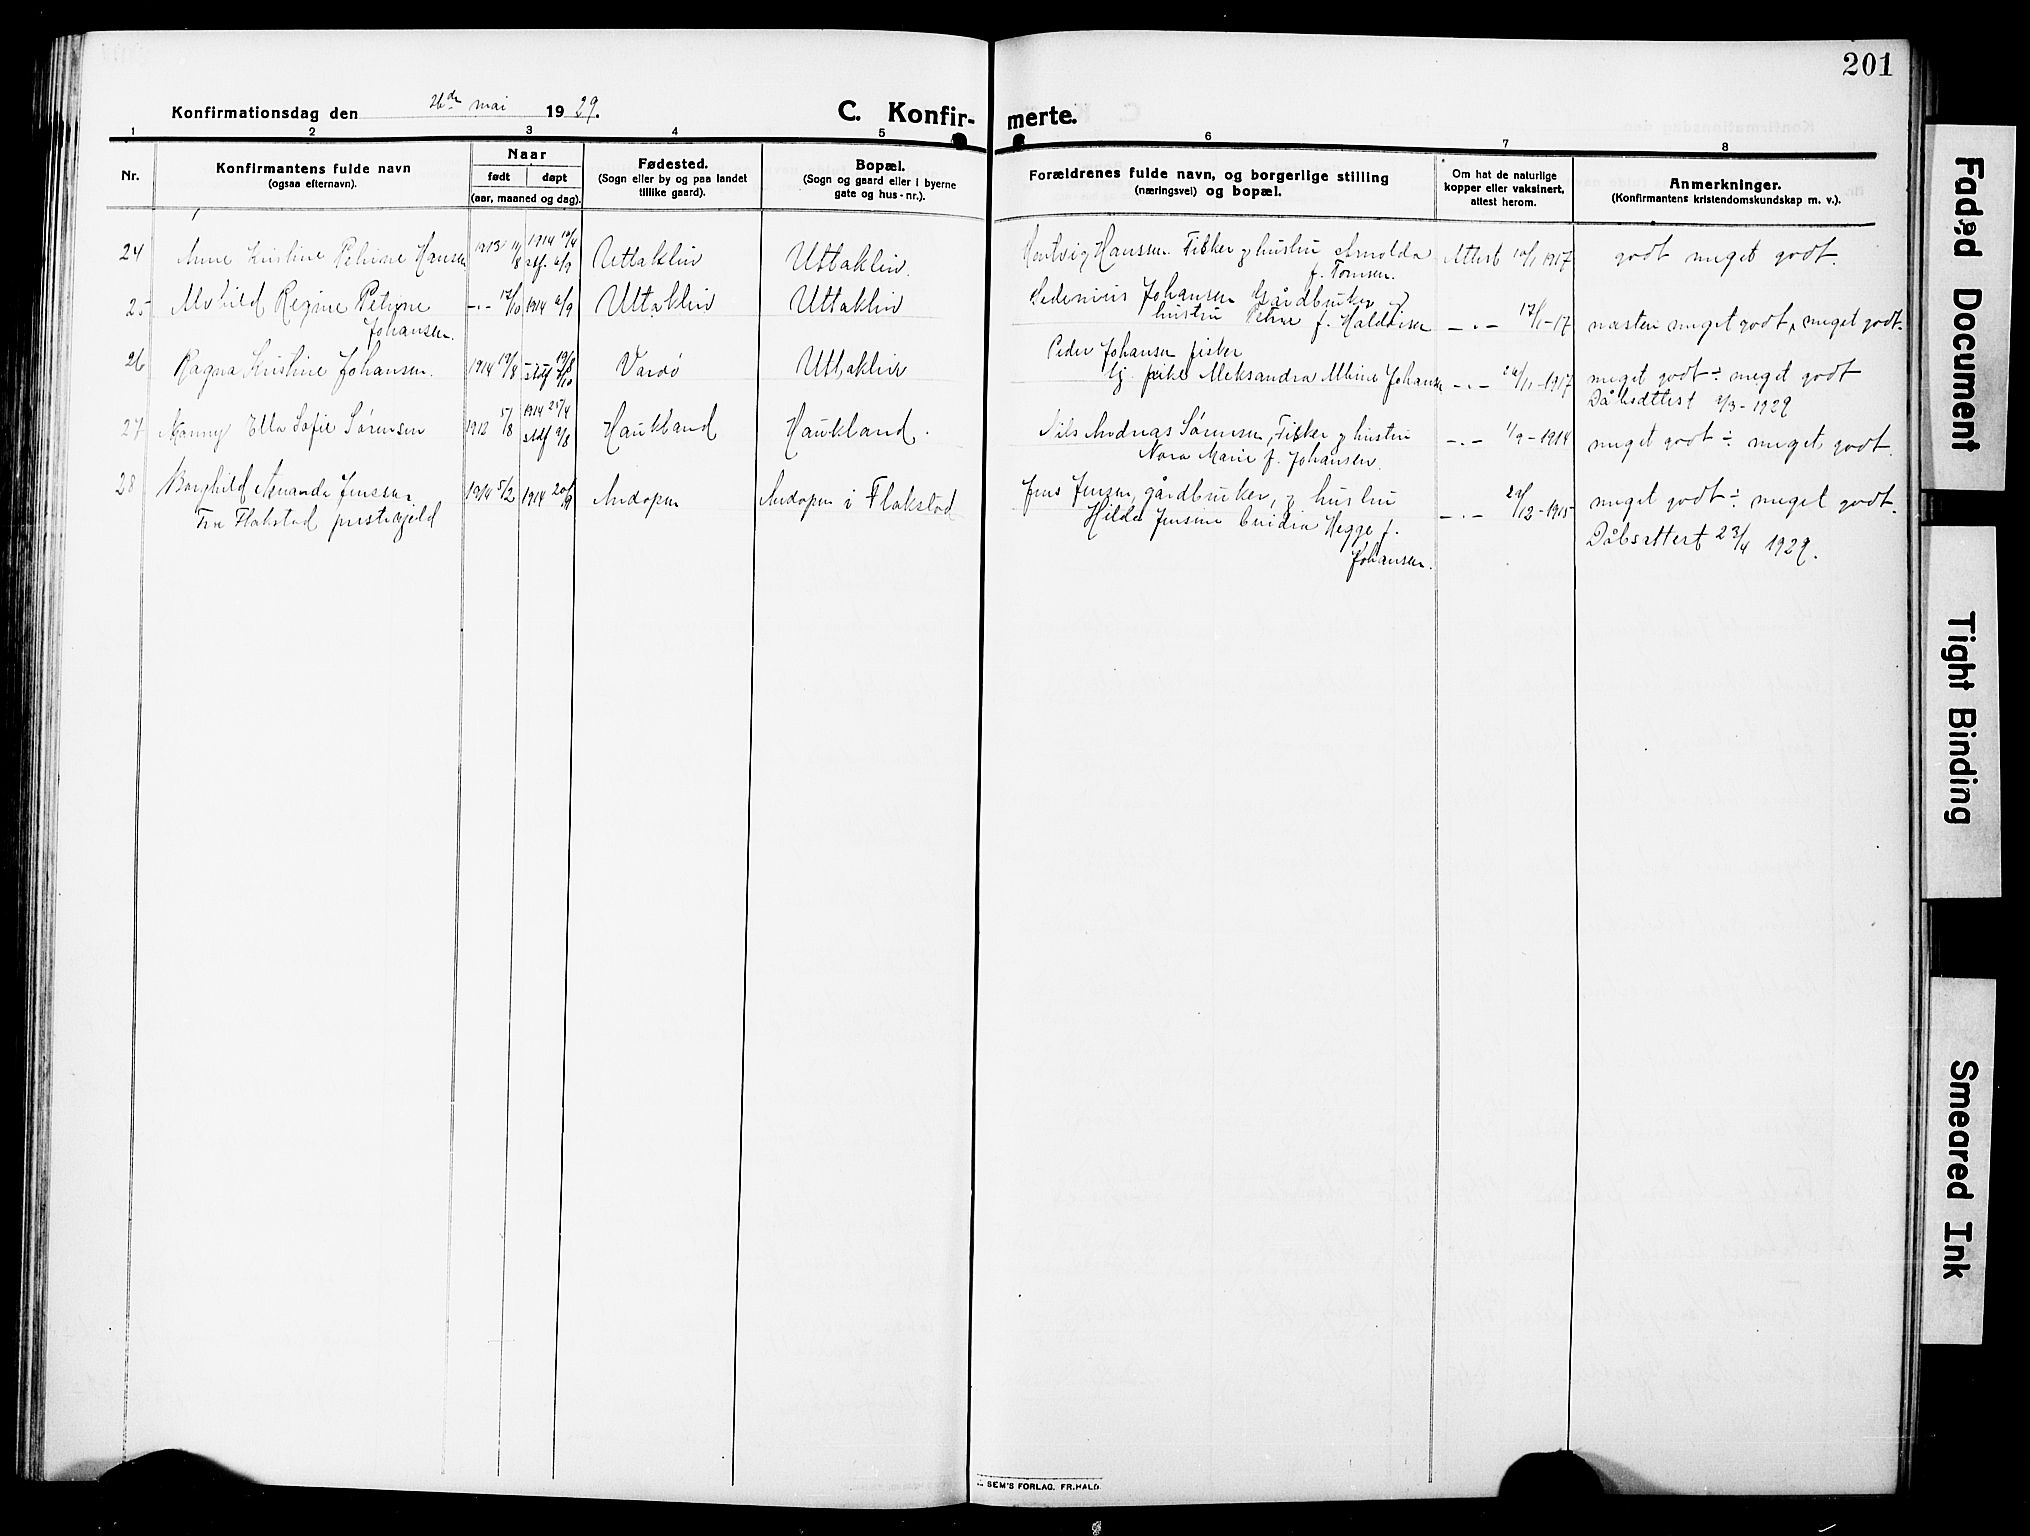 201
Konfirmationsdag den 26de mai 1929.
C. Konfir- merte.
1 2 3 4 5 6 7 8
Nr.
Konfirmantens fulde navn
(ogsaa efternavn).
Naar
født døpt
(aar, maaned og dag).
Fødested.
(Sogn eller by og paa landet
tillike gaard).
Bopæl.
(Sogn og gaard eller i byerne
gate og hus-nr.).
Forældrenes fulde navn, og borgerlige stilling
(næringsvei) og bopæl.
Om hat de naturlige
kopper eller vaksinert,
attest herom.
Anmerkninger.
(Konfirmantens kristendomskundskap m. v.).
24 Anne Kristine Petrine Hansen 1913 Uttakliv Uttakliv. Hanssen Fisker og hustru Arnolda Attest 10/1 1917 godt meget godt.
f. Tomsen.
25 Alvhild Regine Petrine -"- 17/10 1914 6/9 Uttakliv Uttakliv Johansen Gårdbruker og
Johansen. hustru Petra f. Haldorsen -"- 17/1-17 næsten meget godt, meget godt.
26 Ragna Kristine Johansen. 1914 Vardø Uttakliv Peder Johansen fisker
pike Aleksandra Albine Johansen -"- 1917 meget godt ÷ meget godt
Dåbsattest 2/3-1929
27 Nanny Ella Sofie Sørensen 1912 5/8 1914 25/4 Haukland Haukland. Nils Andreas Sørensen, Fisker og hustru -"- 1/9-1914 meget godt ÷ meget godt.
Nora Marie f. Johansen.
28 Borghild Amanda Jenssen 1914 5/2 1914 Andopen Andopen i Flakstad Jens Jensen, gårdbruker, og hustru -"- 1915 meget godt ÷ meget godt.
Fra Flakstad prestegjeld Hilda Jensine Hegge f. Dåbsattest 23/4 1929.
Johansen.
SEM'S FORLAG. FR.HALD.
Faded Document
Tight Binding
Smeared Ink